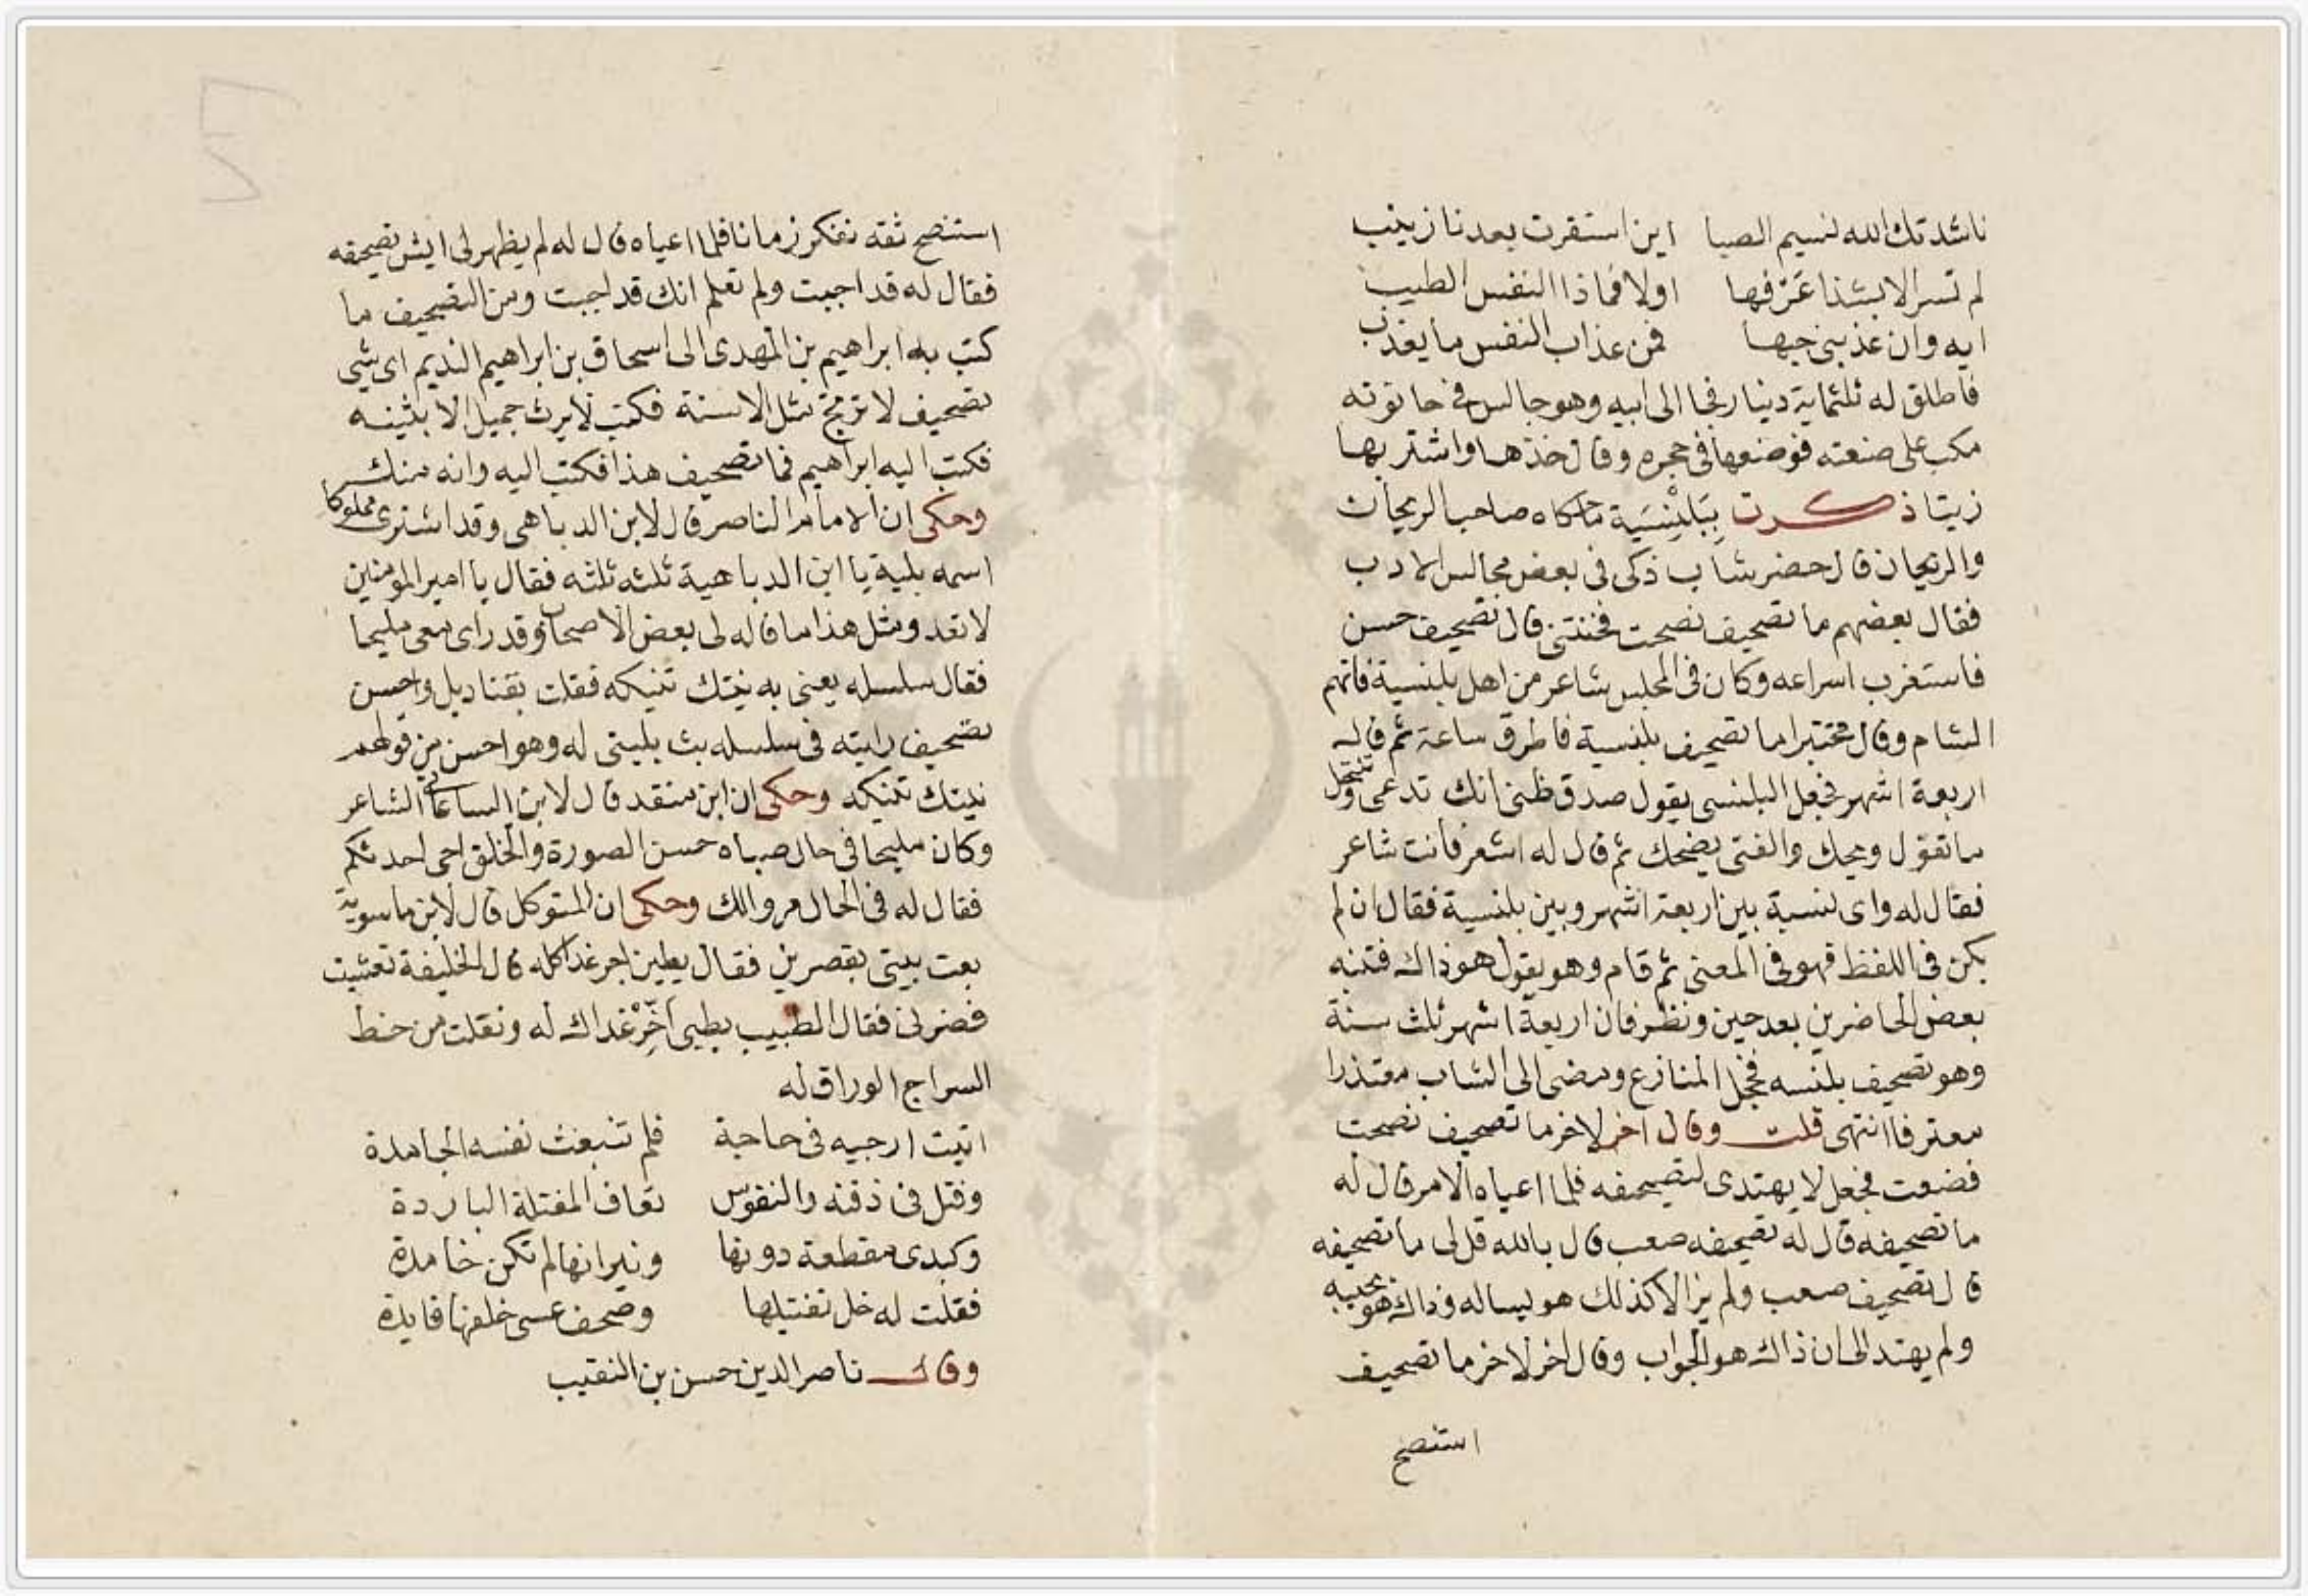 ناشدتك الله نسيم الصبا اين استقرت بعدنا زينب
لم تسر الا بشذا عرفها اولا فماذا النفس الطيب
ايه وان عذبني حبها فمن عذاب النفس ما يعذب
فاطلق له ثلثماية دينار فجا الى ابيه وهو جالس في حانوته
مكب على صنعته فوضعها في حجره وقال خذها واشتر بها
زيتا ذكرت ببلنسية ما حكاه صاحب الريحان
والريحان قال حضر شاب ذكى في بعض مجالس الادب
فقال بعضهم ما تصحيف نصحت فخنتني قال تصحيف حسن
فاستغرب اسراعه وكان في المجلس شاعر من اهل بلنسية فاتهم
الشام وقال مختبرا ما تصحيف بلنسية فاطرق ساعة ثم قال
اربعة اشهر فجعل البلنسي يقول صدق ظني انك تدعى وتنتحل
ما تقول ويحك والفتى يضحك ثم قال له اشعر فانت شاعر
فقال له واى نسبة بين اربعة اشهر وبين بلنسية فقال ان لم
يكن في اللفظ فهو في المعنى ثم قام وهو يقول هو ذاك فتنبه
بعض الحاضرين بعد حين ونظر فان اربعة اشهر ثلث سنة
وهو تصحيف بلنسه فخجل المنازع ومضى الى الشاب معتذرا
معترفا انتهى قلت وقال اخر لاخر ما تصحيف نصحت
فضعت فجعل لا يهتدى لتصحيفه فلما اعياه الامر قال له
ما تصحيفه قال له تصحيفه صعب قال بالله قل لى ما تصحيفه
قال تصحيف صعب ولم يزالا كذلك هو يساله وذاك هو يجيبه
ولم يهتد الى ان ذاك هو الجواب وقال اخر لاخر ما تصحيف
استنصح
استنصح ثقه ففكر زمانا فلما اعياه قال له لم يظهر لى ايش تصحيفه
فقال له قد اجبت ولم تعلم انك قد اجبت ومن التصحيف ما
كتب به ابراهيم بن المهدى الى اسحاق بن ابراهيم النديم اى شى
تصحيف لا تريح مثل الاسنة فكتب لا يرث جميل الا بثينه
فكتب اليه ابراهيم فما تصحيف هذا فكتب اليه وانه منك
وحكى ان الامام الناصر قال لابن الدباهى وقد اشترى مملوكا
اسمه بلية يا ابن الدباهية ثلثه ثلثه فقال يا امير المومنين
لا تعد ومثل هذا ما قاله لى بعض الاصحاب وقد راى معى مليحا
فقال سلسله يعنى به نيتك تنيكه فقلت بقناديل واحسن
تصحيف رايته في سلسله بث بليتى له وهو احسن من قولهم
نيتك تنيكه وحكى ان ابن منقذ قال لابن الساعاتى الشاعر
وكان مليحا في حال صباه حسن الصورة والخلق احى احد شكم
فقال له في الحال مر والك وحكى ان المتوكل قال لابن ماسوية
بعت بيتى بقصرين فقال يطين اخر غدا كله قال الخليفة تعشيت
فضرنى فقال الطبيب يطبى اخر غداك له ونقلت من خط
السراج الوراق له
اتيت ارجيه في حاجة فلم تنبعث نفسه الجامدة
وفتل في ذقنه والنفوس تعاف المفتلة الباردة
وكبدى مقطعة دونها ونيرانها لم تكن خامدة
فقلت له خل تفتيلها وصحف عسى خلفها فايدة
وقال ناصر الدين حسن بن النقيب